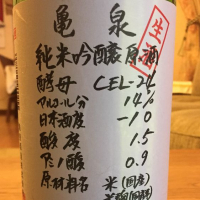 亀泉
生酒
純米吟醸原酒
酵母 CEL-24
アルコール分 14%
日本酒度 -10
酸度 1.5
アミノ酸 0.9
原材料名 米(国産)